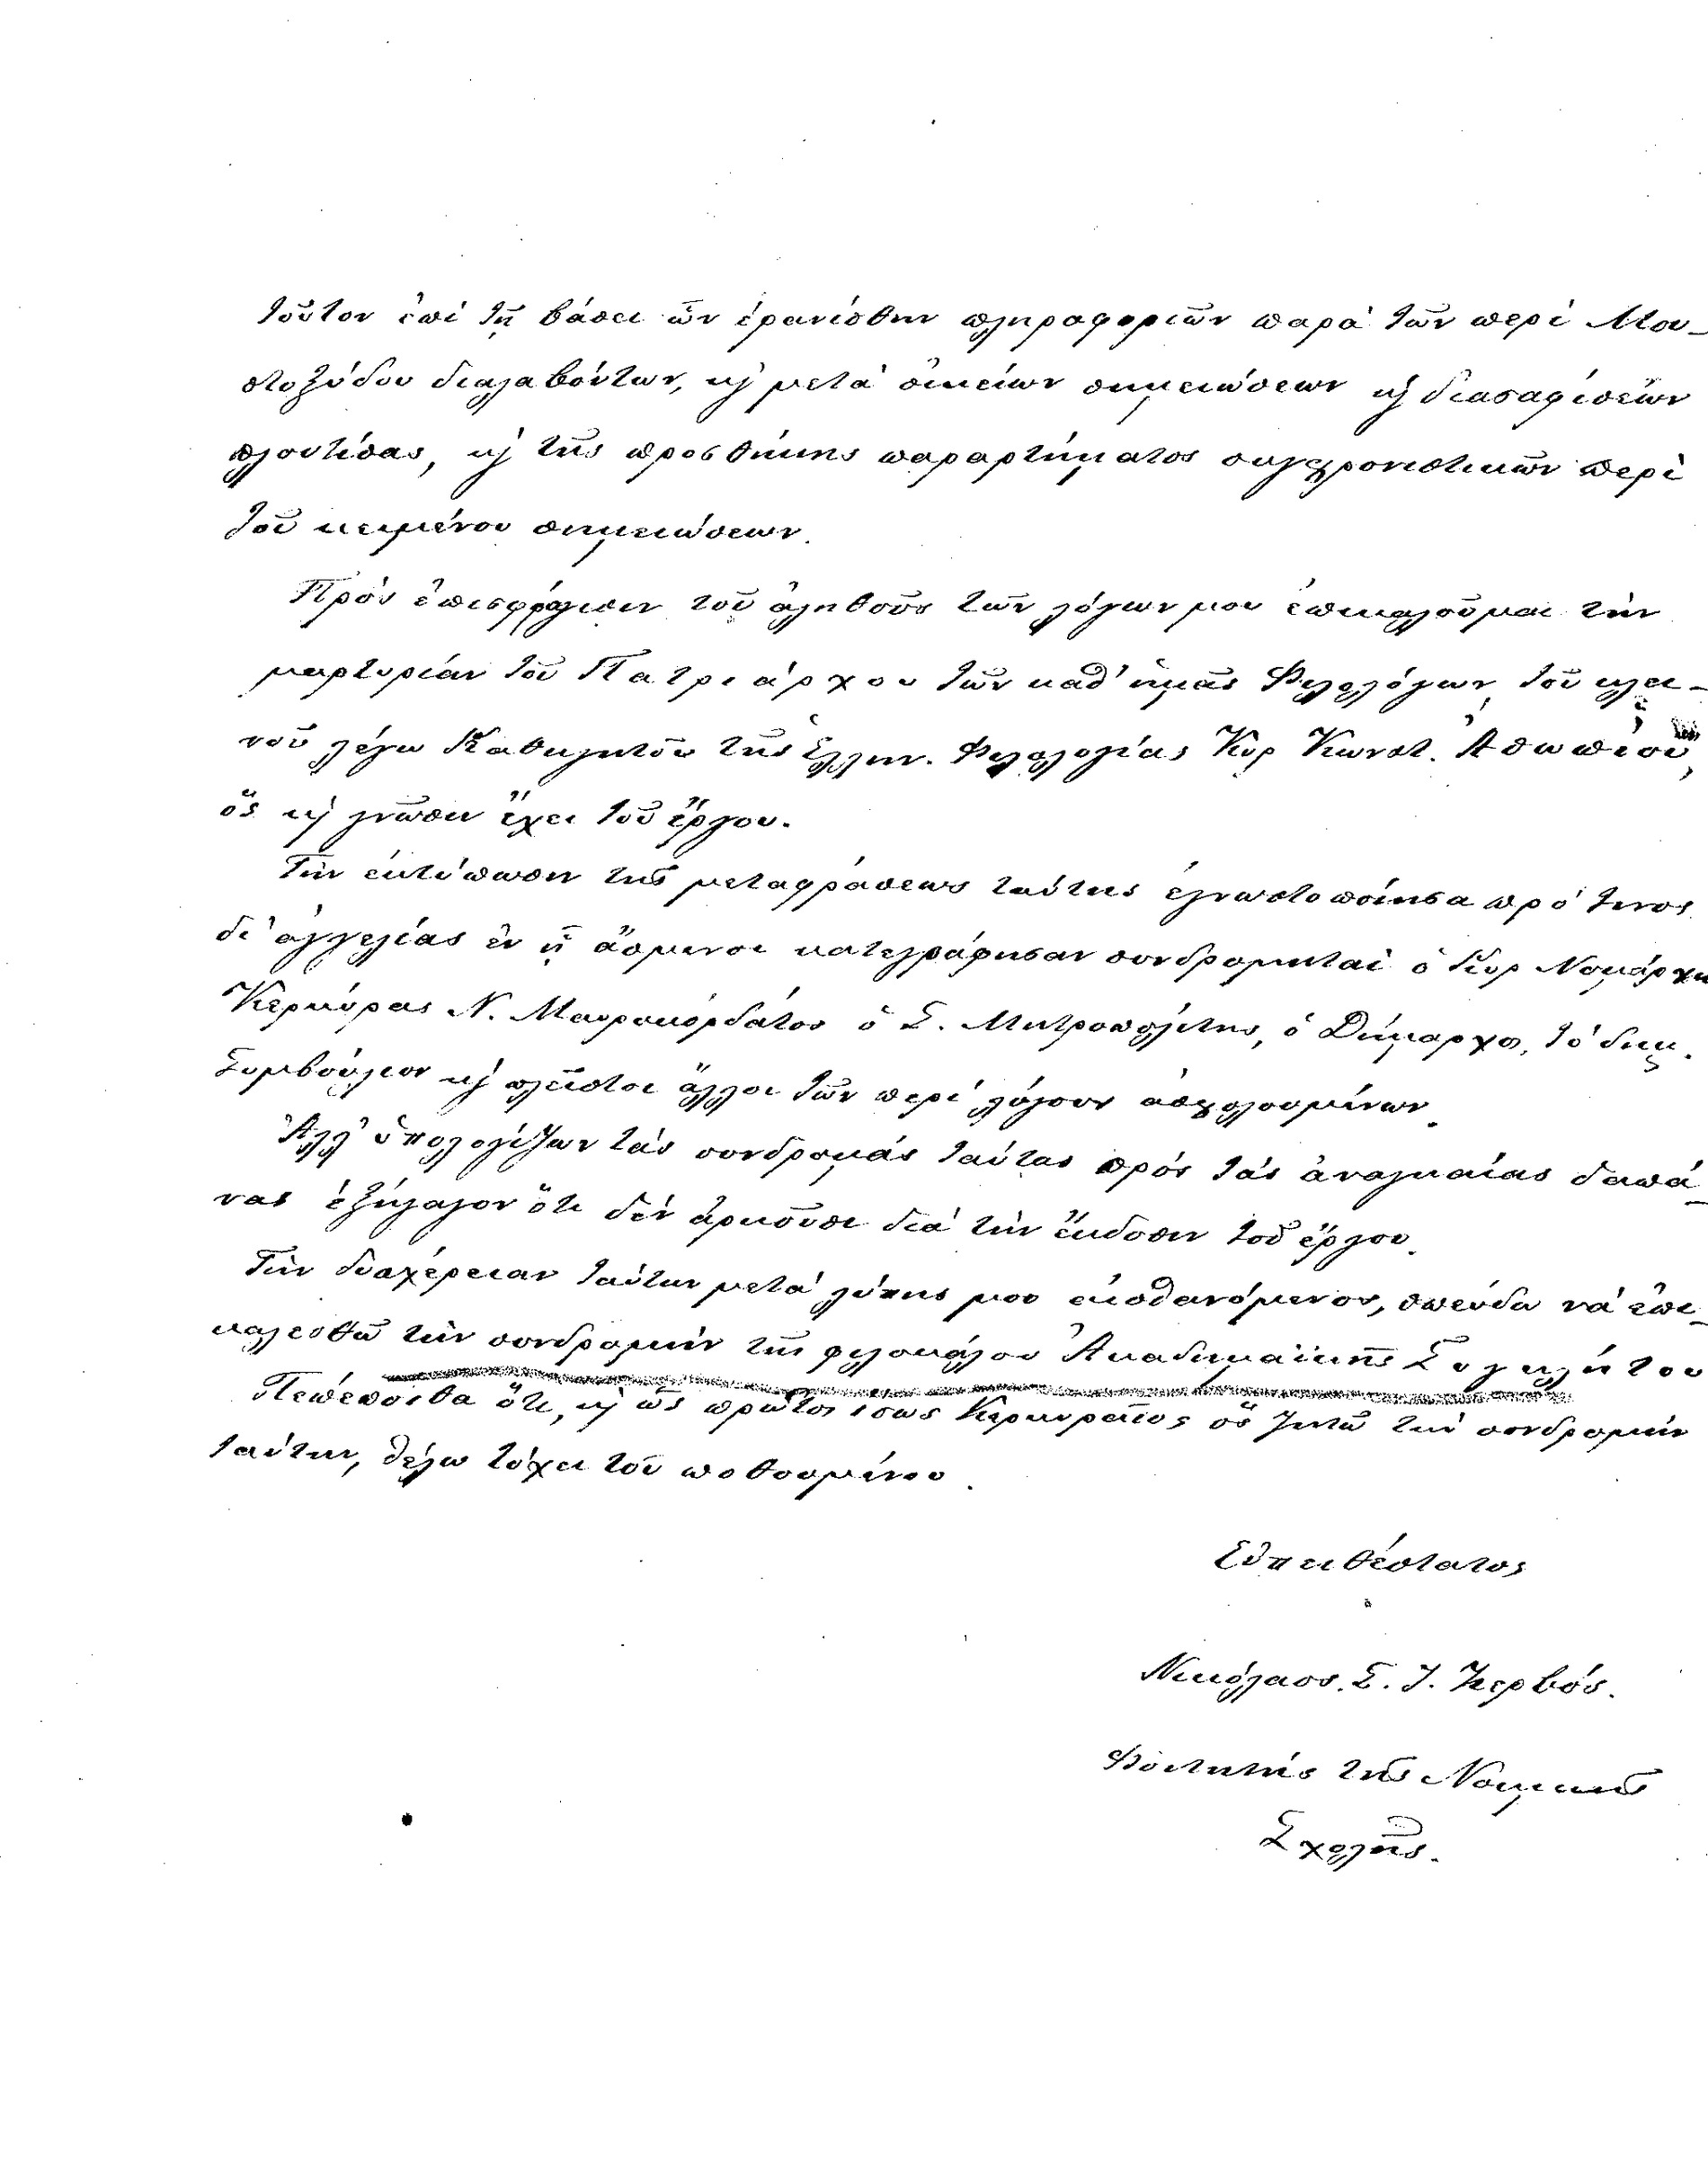 τοῦτον ἐπὶ τῇ βάσει ὧν ἐρανίσθην πληροφοριῶν παρὰ τῶν περὶ Μου-
στοξύδου διαλαβόντων, κὶ μετὰ οἰκείων σημειώσεων κὶ διασαφίσεων
πλουτίσας, κὶ τῆς προσθήκης παραρτήματος συγχρονιστικῶν περὶ
τοῦ κειμένου σημειώσεων.
Πρὸς ἐπισφράγισιν τοῦ ἀληθοῦς τῶν λόγων μου ἐπικαλοῦμαι τὴν
μαρτυρίαν τοῦ Πατριάρχου τῶν καθ' ἡμᾶς Φιλολόγων, τοῦ κλει-
νοῦ λέγω Καθηγητοῦ τῆς Ἑλλην. Φιλολογίας Κυρ Κωνστ. Ἀσωπίου,
ὃς κὶ γνῶσιν ἔχει τοῦ ἔργου.
Τὴν ἐκτύπωσιν τῆς μεταφράσεως ταύτης ἐγνωστοποίησα πρό τινος
δι' ἀγγελίας ἐν ᾗ ἄσμενοι κατεγράφησαν συνδρομηταὶ ὁ Κυρ Νομάρχη
Κερκύρας Ν. Μαυροκορδάτος ὁ Σ. Μητροπολίτης, ὁ Δήμαρχος, τὸ δημ.
Συμβούλιον κὶ πλεῖστοι ἄλλοι τῶν περὶ λόγους ἀσχολουμένων.
Ἀλλ' ὑπολογίζων τὰς συνδρομάς ταύτας πρὸς τὰς ἀναγκαίας δαπά-
νας ἐξήγαγον ὅτι δὲν ἀρκοῦσι διὰ τὴν ἔκδοσιν τοῦ ἔργου.
Τὴν δυσχέρειαν ταύτην μετὰ λύπης μου αἰσθανόμενος, σπεύδω νὰ ἐπι-
καλεσθῶ τὴν συνδρομὴν τῆς φιλοκάλου Ἀκαδημαϊκῆς Συγκλήτου
Πέπεποιθα ὅτι, κὶ ὡς πρῶτος ἴσως Κερκυραῖος ὃς ζητῶ τὴν συνδρομὴν
ταύτην, θέλω τύχει τοῦ ποθουμένου.
Εὐπειθέστατος
Νικόλαος. Σ. Ι. Ζερβός.
Φοιτητὴς τῆς Νομικῆς
Σχολῆς.